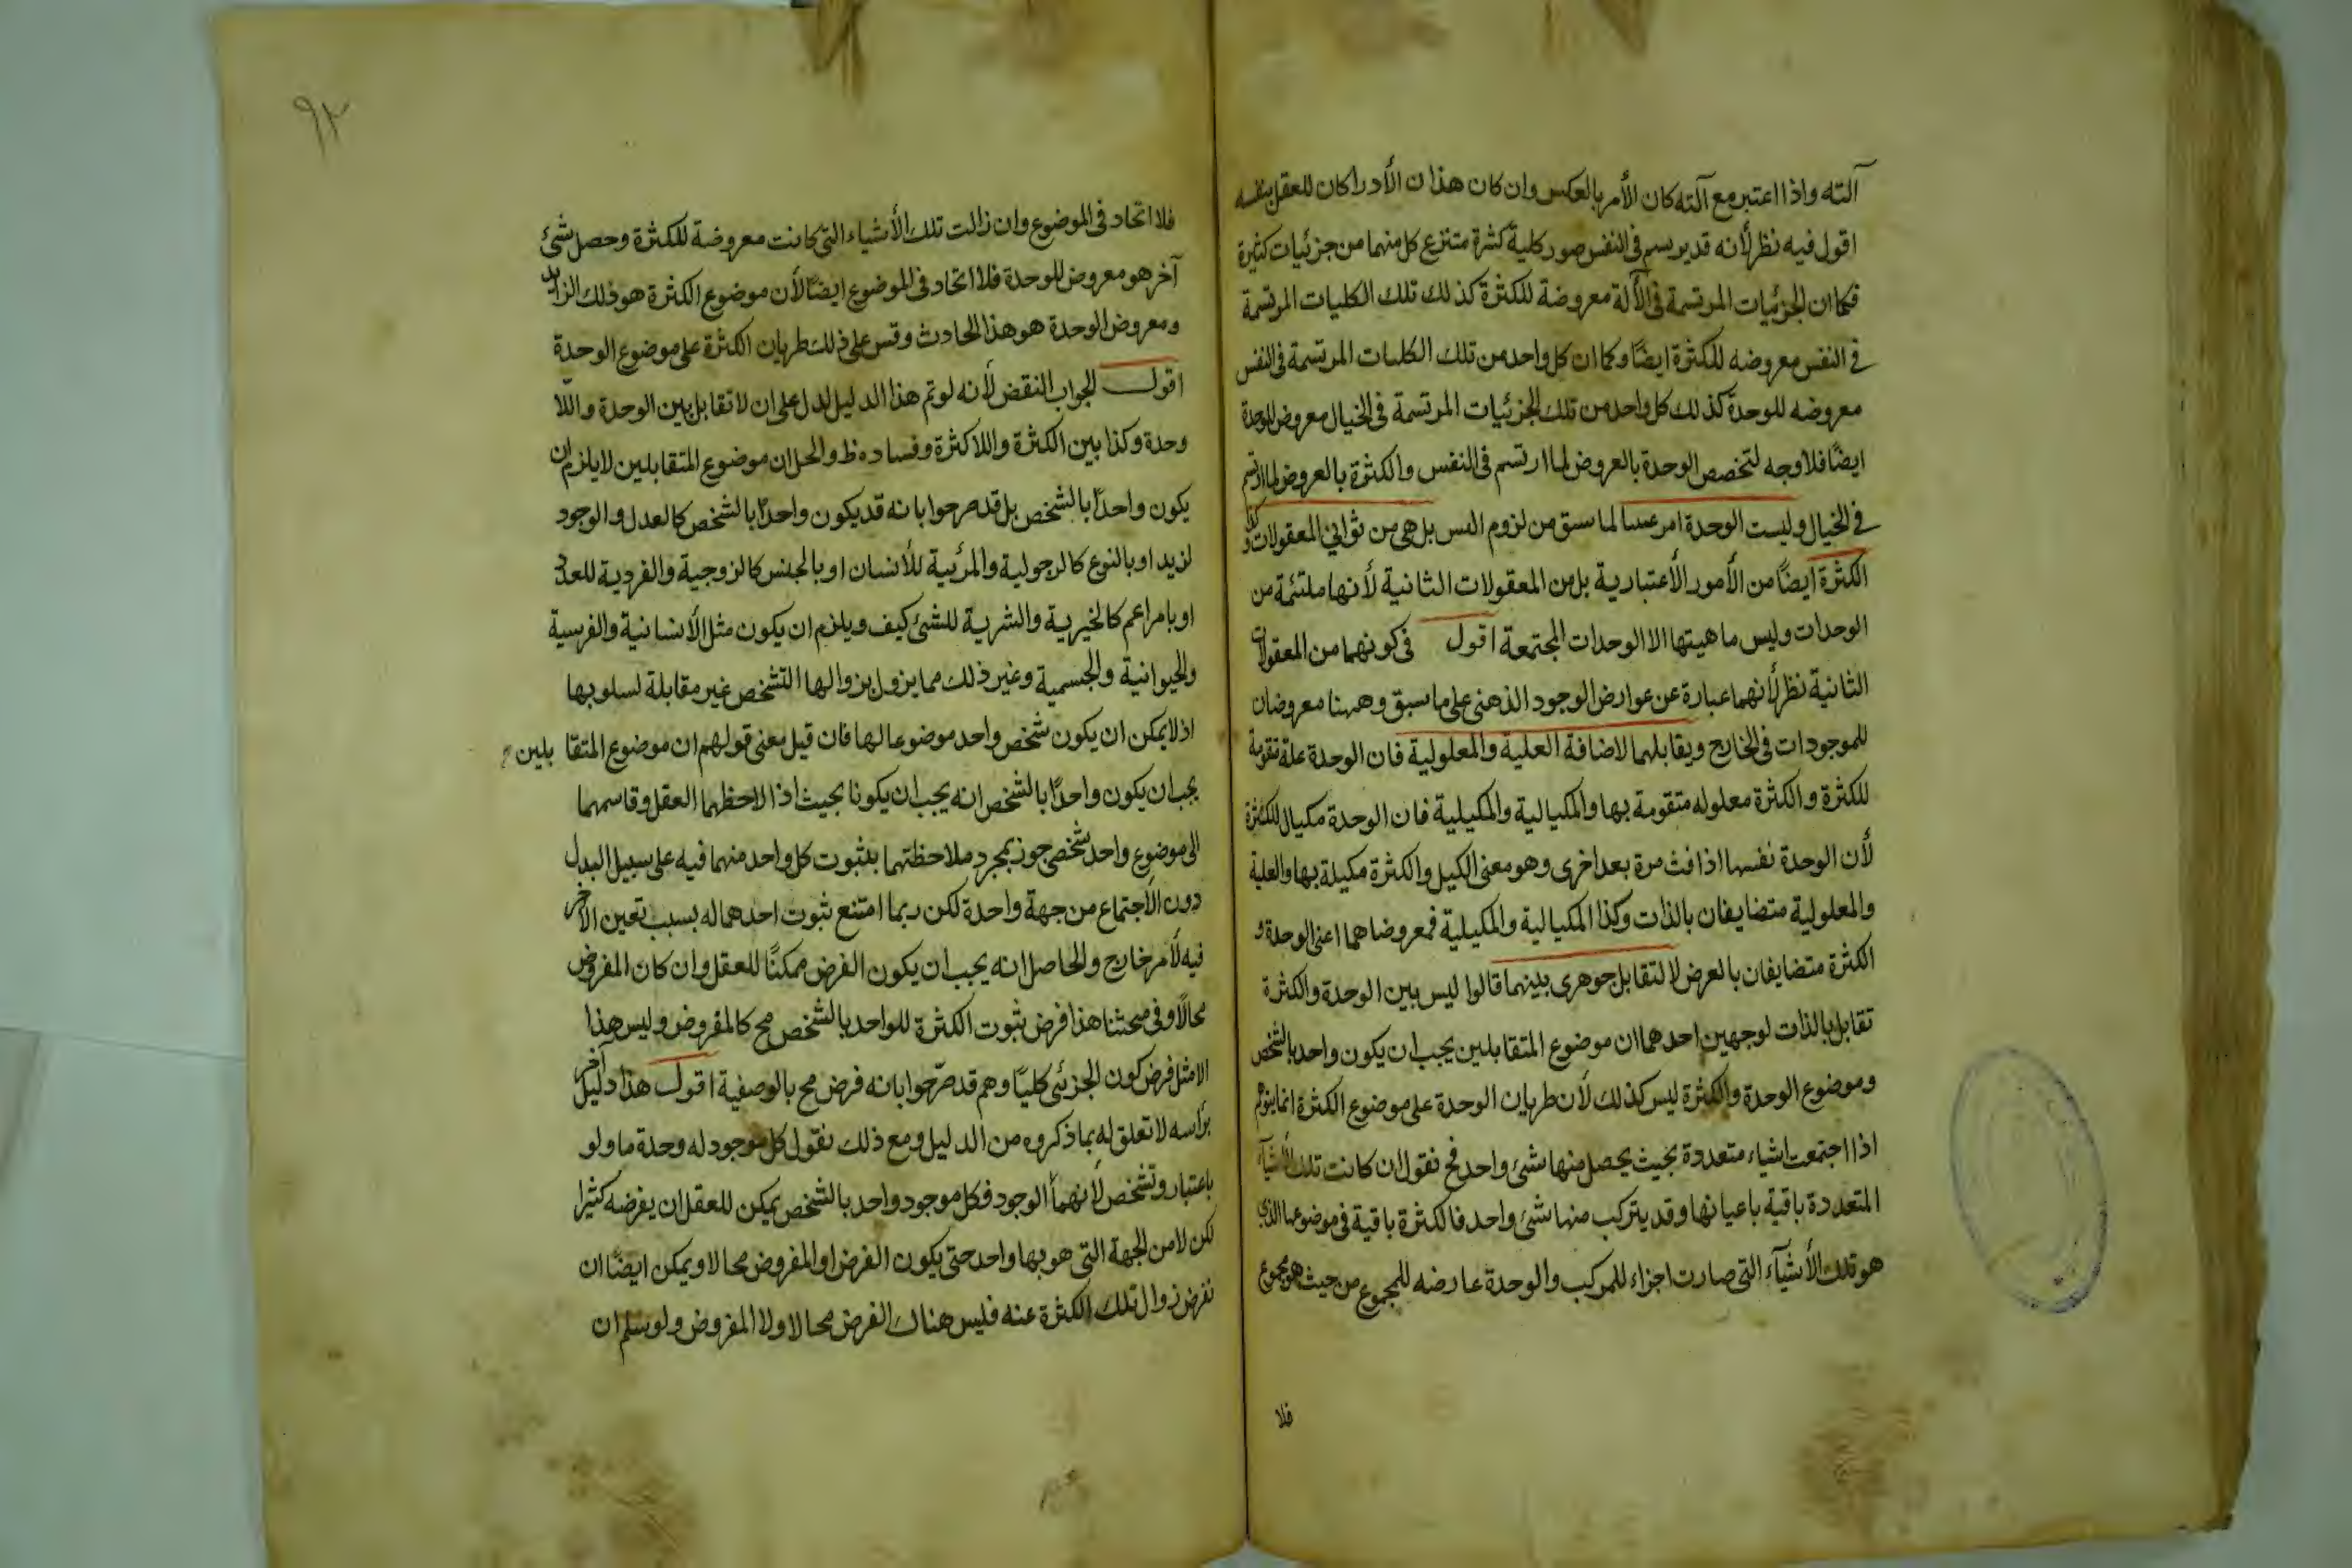 آلته واذا اعتبر مع آلته كان الأمر بالعكس وان كان هذان الأدراكان للعقل بنفسه
اقول فيه نظر لأنه قد يرتسم في النفس صور كلية كثرة متنزع كل منهما من جزئيات كثيرة
فكما ان الجزئيات المرتسمة في الآلة معروضة للكثرة كذلك تلك الكليات المرتسمة
في النفس معروضه للكثرة ايضًا وكما ان كل واحد من تلك الكليات المرتسمة في النفس
معروضه للوحدة كذلك كل واحد من تلك الجزئيات المرتسمة في الخيال معروض للوحدة
ايضًا فلا وجه لتخصص الوحدة بالعروض لما ارتسم في النفس والكثرة بالعروض لما ارتسم
في الخيال وليست الوحدة امر عينيا لما سبق من لزوم التس بل هي من ثواني المعقولات وكذا
الكثرة ايضًا من الأمور الأعتبارية بل من المعقولات الثانية لأنها ملتئمة من
الوحدات وليس ماهيتها الا الوحدات المجتمعة اقول في كونهما من المعقولات
الثانية نظر لأنهما عبارة عن عوارض الوجود الذهني على ما سبق وههنا معروضان
للموجودات في الخارج ويقابلهما لاضافة العلية والمعلولية فان الوحدة علة مقومة
للكثرة والكثرة معلوله متقومة بها والمكيالية والمكيلية فان الوحدة مكيال للكثرة
لأن الوحدة نفسها اذا فنت مرة بعد اخرى وهو معنى الكيل والكثرة مكيلة بها والعلية
والمعلولية متضايفان بالذات وكذا المكيالية والمكيلية فمعروضاهما اعنى الوحدة و
الكثرة متضايفان بالعرض لا لتقابل جوهرى بينهما قالوا ليس بين الوحدة والكثرة
تقابل بالذات لوجهين احدهما ان موضوع المتقابلين يجب ان يكون واحد بالشخص
وموضوع الوحدة والكثرة ليس كذلك لأن طريان الوحدة على موضوع الكثرة انما يتوهم
اذا اجتمعت اشياء متعددة بحيث يحصل منها شئ واحد فح نقول ان كانت تلك الأشيآء
المتعددة باقية باعيانها وقد يتركب منها شئ واحد فالكثرة باقية في موضوعها الذي
هو تلك الأشيآء التي صارت اجزاء للمركب والوحدة عارضه للمجموع من حيث هو مجموع
فلا
٩٢
فلا اتحاد في الموضوع وان زالت تلك الأشياء التي كانت معروضة للكثرة وحصل شئ
آخر هو معروض للوحدة فلا اتحاد في الموضوع ايضًا لأن موضوع الكثرة هو ذلك الزايد
ومعروض الوحدة هو هذا الحادث وقس على ذلك طريان الكثرة على موضوع الوحدة
اقول الجواب النقض لأنه لو تم هذا الدليل لدل على ان لا تقابل بين الوحدة واللّا
وحدة وكذا بين الكثرة واللاكثرة وفساده ظ والحل ان موضوع المتقابلين لا يلزم ان
يكون واحدًا بالشخص بل قد صرحوا بانه قد يكون واحدًا بالشخص كالعدل والوجود
لزيد او بالنوع كالرجولية والمرئية للأنسان او بالجنس كالزوجية والفردية للعدد
او بامر اعم كالخيرية والشرية للشئ كيف ويلزم ان يكون مثل الأنسانية والفرسية
والحيوانية والجسمية وغير ذلك مما يزول بزوالها التشخص غير مقابلة لسلوبها
اذ لا يمكن ان يكون شخص واحد موضوعا لها فان قيل معنى قولهم ان موضوع المتقا بلين
يجب ان يكون واحدًا بالشخص انه يجب ان يكونا بحيث اذا لاحظهما العقل وقاسهما
الى موضوع واحد شخصي جوز بمجرد ملاحظتهما بثبوت كل واحد منهما فيه على سبيل البدل
دون الأجتماع من جهة واحدة لكن ربما امتنع ثبوت احدهما له بسبب تعين الآخر
فيه لأمر خارج والحاصل انه يجب ان يكون الفرض ممكنًا للعقل وان كان المفروض
محالًا وفي مبحثنا هذا فرض ثبوت الكثرة للواحد بالشخص مح كالمفروض وليس هذا
الا مثل فرض كون الجزئي كليًا وهم قد صرّحوا بانه فرض مح بالوصفية اقول هذا دليل آخر
برأسه لا تعلق له بما ذكروه من الدليل ومع ذلك نقول كل موجود له وحدة ما ولو
باعتبار وتشخص لأنهما الوجود فكل موجود واحد بالشخص يمكن للعقل ان يفرضه كثيرا
لكن لا من الجهة التي هو بها واحد حتى يكون الفرض او المفروض محالا ويمكن ايضًا ان
نفرض زوال تلك الكثرة عنه فليس هناك الفرض محالا ولا المفروض ولو سلم ان